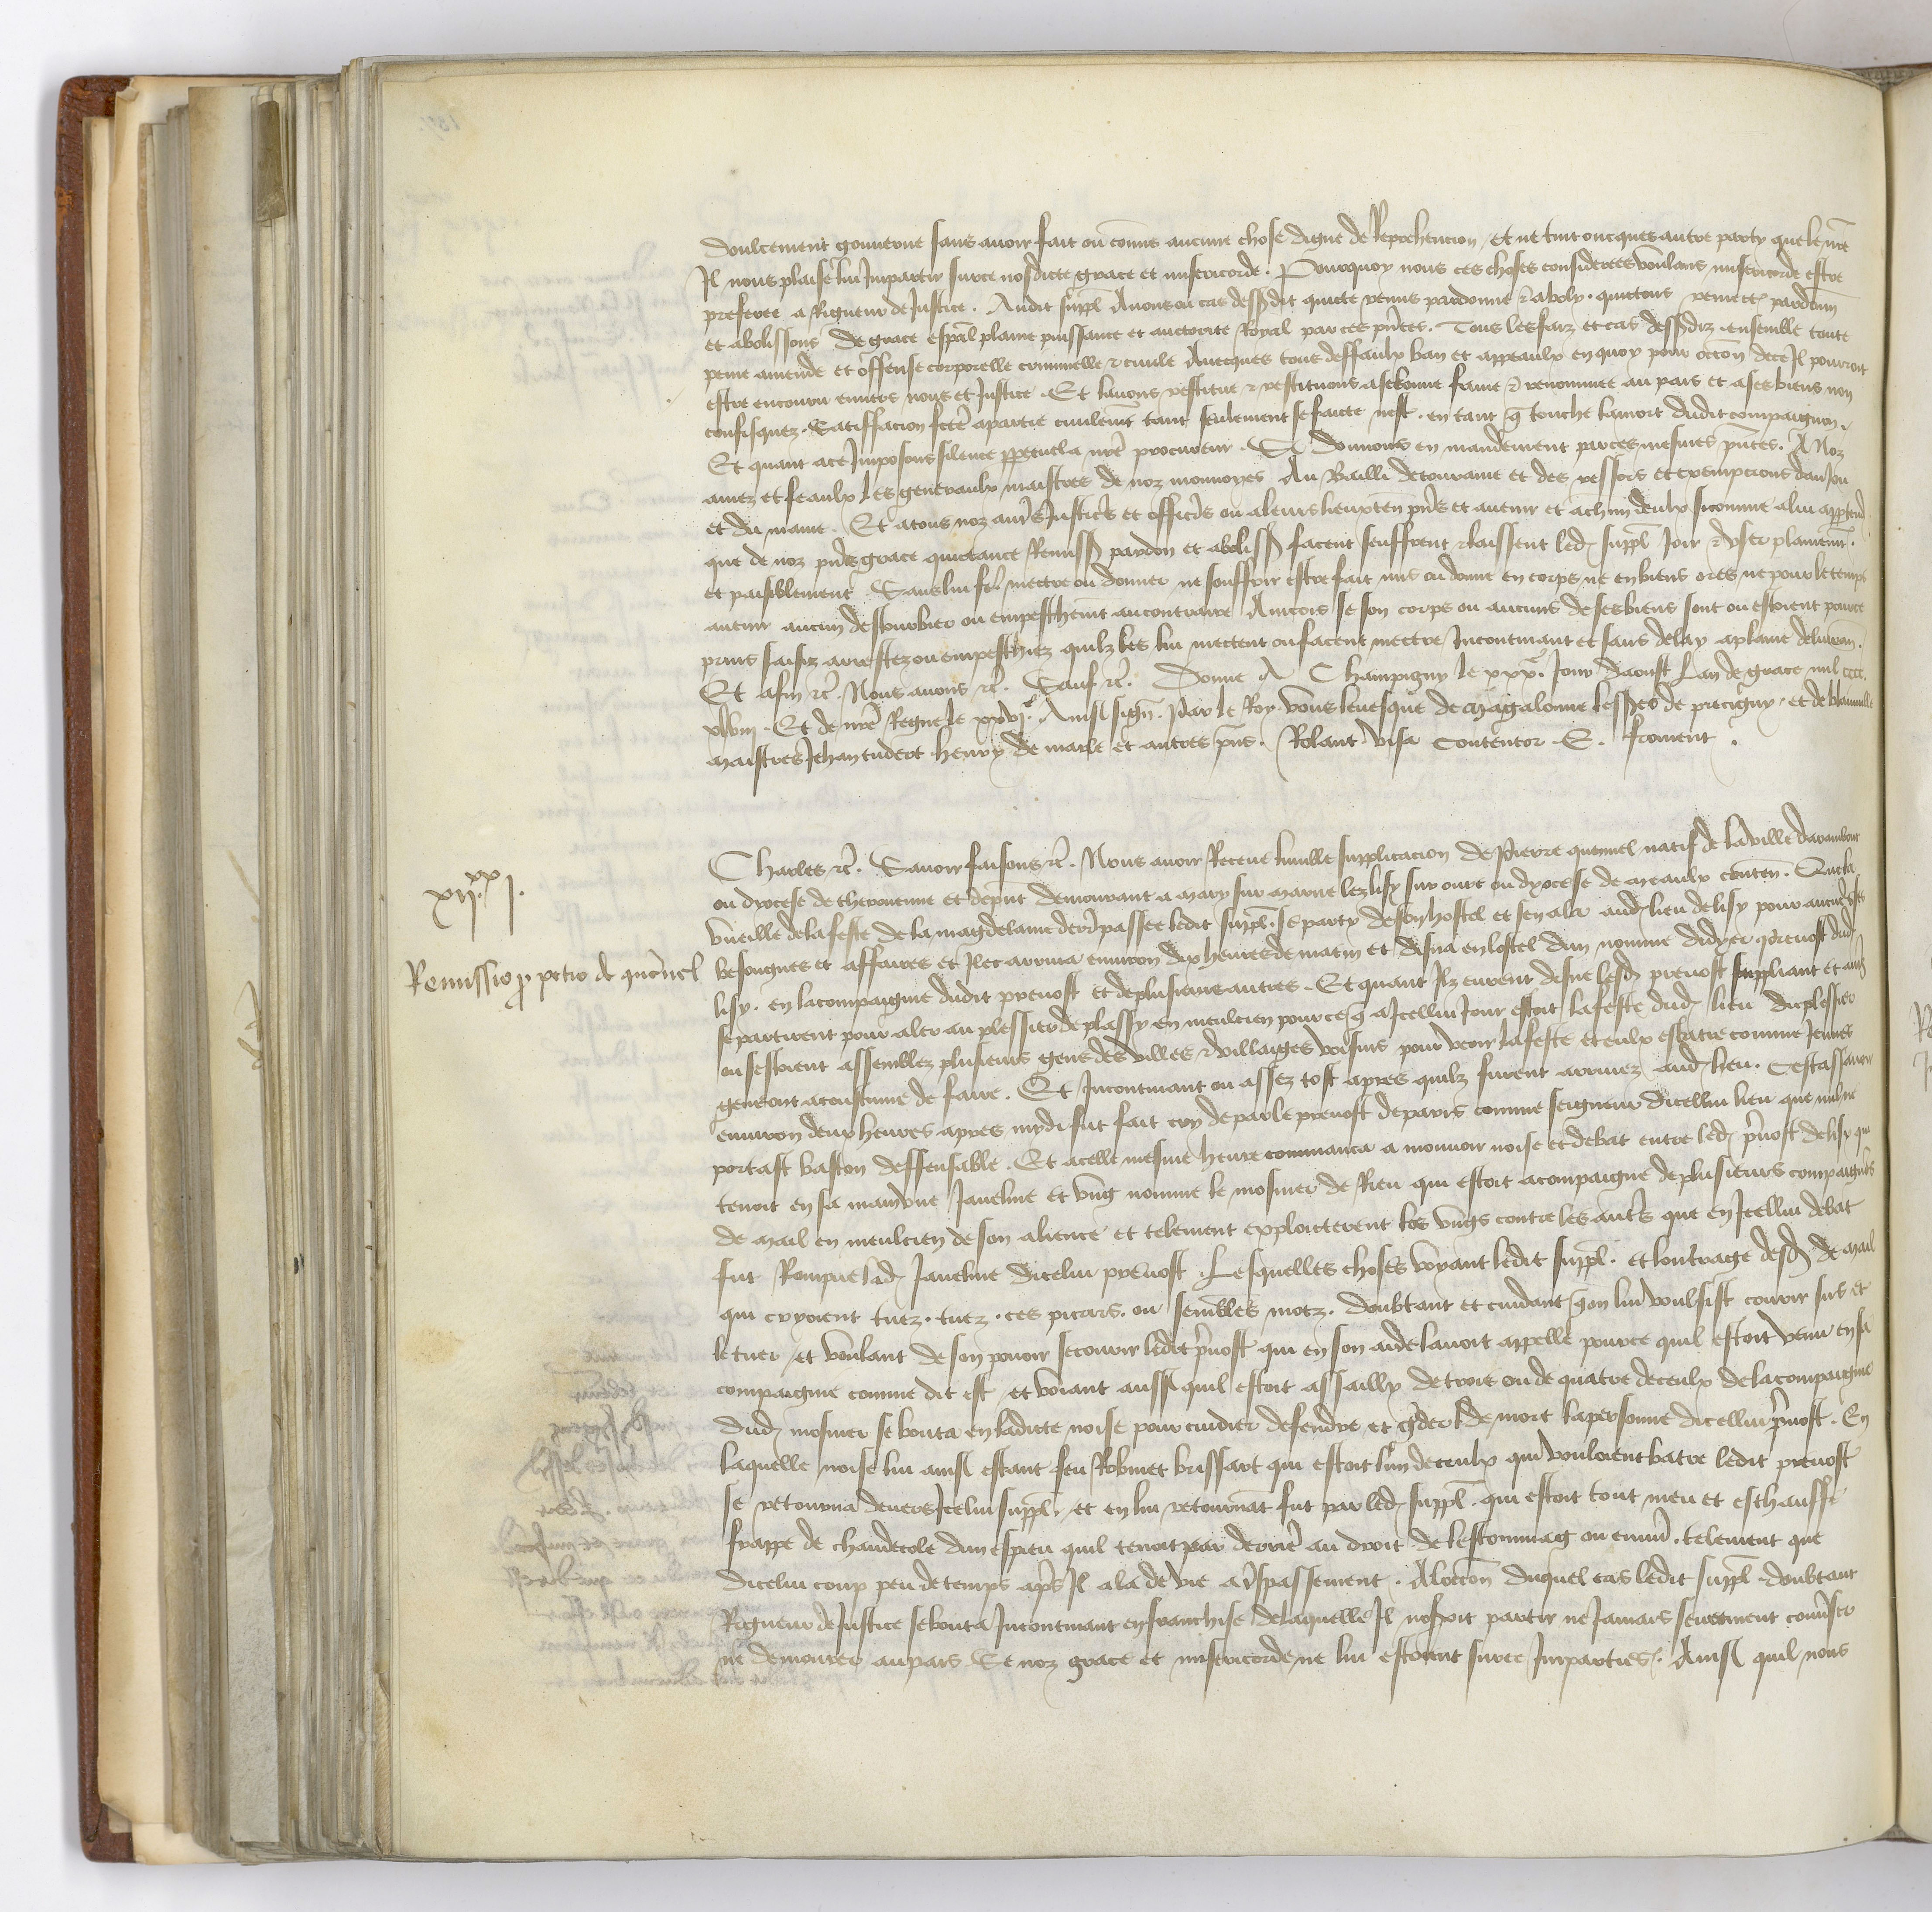 doulcement gouverné sans avoir fait ou comis aucune chose digne de reprehencion, et ne tint oncques autre party que le nre
Il nous plaise lui Impartir sur ce nosdicte grace et misericorde. Pourquoy nous ces choses considerees voulans misericorde estre
preferee a Rigueur de Justice. Audit suppl Avons ou cas dessusdit quicte remis pardonne & aboly. quictons remettons pardonnons
et abolissons de grace espal plaine puissance et auctorite Royal par ces pntes. Tous les faiz et cas dessusdiz ensemble toute
peine amende et offense corporelle criminelle & civile Avecques tous deffaulx ban et appeaulx en quoy pour occon de ce Il pourroit
estre encouru envers nous et Justice. Et lavons restitue & restituons a sa bonne fame & renommee au pais et a ses biens non
confisquez. Satisfacion fcte a partie civilemt tant seulement se faicte nest. en tant q touche la mort dudit compaignon.
Et quant a ce Imposons silence ppetuel a nre procureur. Si donnons en mandement par ces mesmes pntes. A Noz
amez et feaulx les generaulx maistres de noz monnoyes Au Bailli de touraine et des ressors et exempcions danjou
et du maine. Et a tous noz aues Justices et offics ou a leurs lieuxten pns et avenir et a chun deulx si comme a lui apptendra
que de noz pns grace quictance Remiss pardon et aboliss facent seuffrent & laissent led suppl Joir & user plainemt
et paisiblement Sans lui fe mectre ou donner ne souffrir estre fait mis ou donne en corps ne en biens ores ne pour le temps
avenir aucun destourbier ou empeschemt au contraire Aincois se son corps ou aucuns de ses biens sont ou estoient pour ce
prins saisiz arrestez ou empeschiez quilz les lui mectent ou facent mectre Incontinant et sans delay a plaine delivran.
Et afin &c. Nous avons &c. Sauf &c. Donne A Champigny le xxx Jour daoust Lan de grace mil cccc.
xlviij. Et de nre Regne le xxvj. Ainsi sign. Par le Roy. vous levesque de magalonne les srs de precigny et de blainville
maistres Jehan tudert henry de marle et autres pns. Rolant. Visa Contentor. E. froment.
xijxx j.
Remissio p petro de quesnel
Charles &c. Savoir faisons &c. Nous avoir Receue lumble supplicacion de Pierre quesnel natif de la ville
ou dyocese de therouenne et depnt demourant a mary sur marne lez lisy sur ourc ou dyocese de meaulx conten. Que la
vueille de la feste de la magdelaine derr passee ledit suppl se party de son hostel et sen ala aud lieu de lisy pour aucunes ses
besongnes et affaires et Ilec arriva environ dix heures de matin et disna en lostel dun nomme didyer prevost dud
lisy. en la compaignie dudit prevost et de plusieurs autres. Et quant Ilz eurent disne lesd prevost suppliant et aues
se partirent pour aler au plessier de plassy en meulcien pour ce q a Icellui Jour estoit la feste dud lieu du plessier
ou sestoient assemblez plusieurs gens des villes & villaiges voisins pour veoir la feste et eulx esbatre comme Jeunes
gens ont acoustume de faire. Et Incontinant ou assez tost apres quilz furent arrivez aud lieu. Cestassavoir
environ deux heures apres mydi fut fait cry de par le prevost de paris comme seigneur dicellui lieu que nul ne
portast baston deffensable. Et a celle mesme heure commanca a mouvoir noise et debat entre led prevost de lisy qui
tenoit en sa main une Javeline et ung nomme le mosnier de Rieu qui estoit acompaigne de plusieurs compaignons
de mail en meulcien de son alience et telement exploicterent les ungs contre les autrs que en Icellui debat
fut Rompue lad Javeline dicelui prevost. Lesquelles choses voyant ledit suppl. et loultrage desd de mail
qui cryoient tuez. tuez. ces picars. ou sembles motz. doubtant et cuidant qon lui voulsist courir sus et
le tuer, et voulant de son povoir secourir ledit prevost qui en son aide lavoit appelle pour ce quil estoit venu en sa
compaignie comme dit est, et voiant aussi quil estoit assailly de trois ou de quatre de ceulx de la compaignie
dud mosnier se bouta en ladicte noise pour cuidier defendre et gder de mort la personne dicellui prevost. En
laquelle noise lui ainsi estant feu Robinet brissart qui estoit lun de ceulx qui vouloient batre ledit prevost
se retourna devers Icelui suppl. et en lui retournat fut par led suppl. qui estoit tout meu et eschauffe
frappe de chaudecole dun espieu quil tenoit par derrie au droit de lestommag ou envir. telement que
dicelui coup peu de temps aps Il ala de vie a trespassement. A loccon duquel cas ledit suppl. doubtant
Rigueur de Justice se bouta Incontinant en franchise de laquelle Il nosoit partir ne Jamais seurement converser
ne demourer au pais Se noz grace et misericorde ne lui estoient sur ce Imparties. Ainsi quil nous